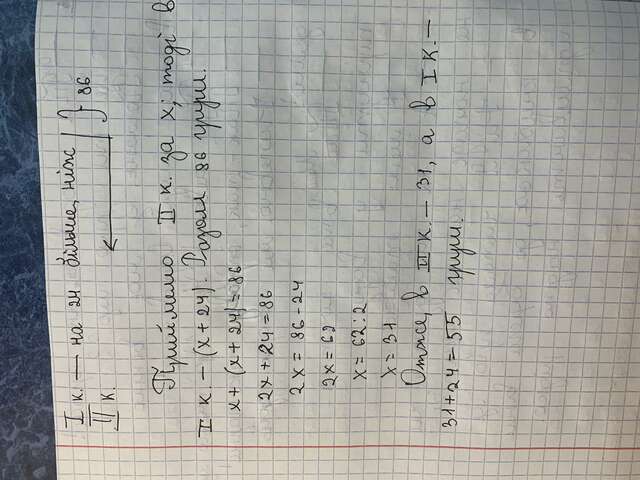 І к. — на 24 більше, ніж
ІІ к.
} 86
Приймемо ІІ к. за х; тоді в
І к. – (х + 24). Разом 86 груш.
х + (х + 24) = 86
2х + 24 = 86
2х = 86 - 24
2х = 62
х = 62 : 2
х = 31
Отже, в ІІ к. – 31, а в І к. –
31 + 24 = 55 груш.